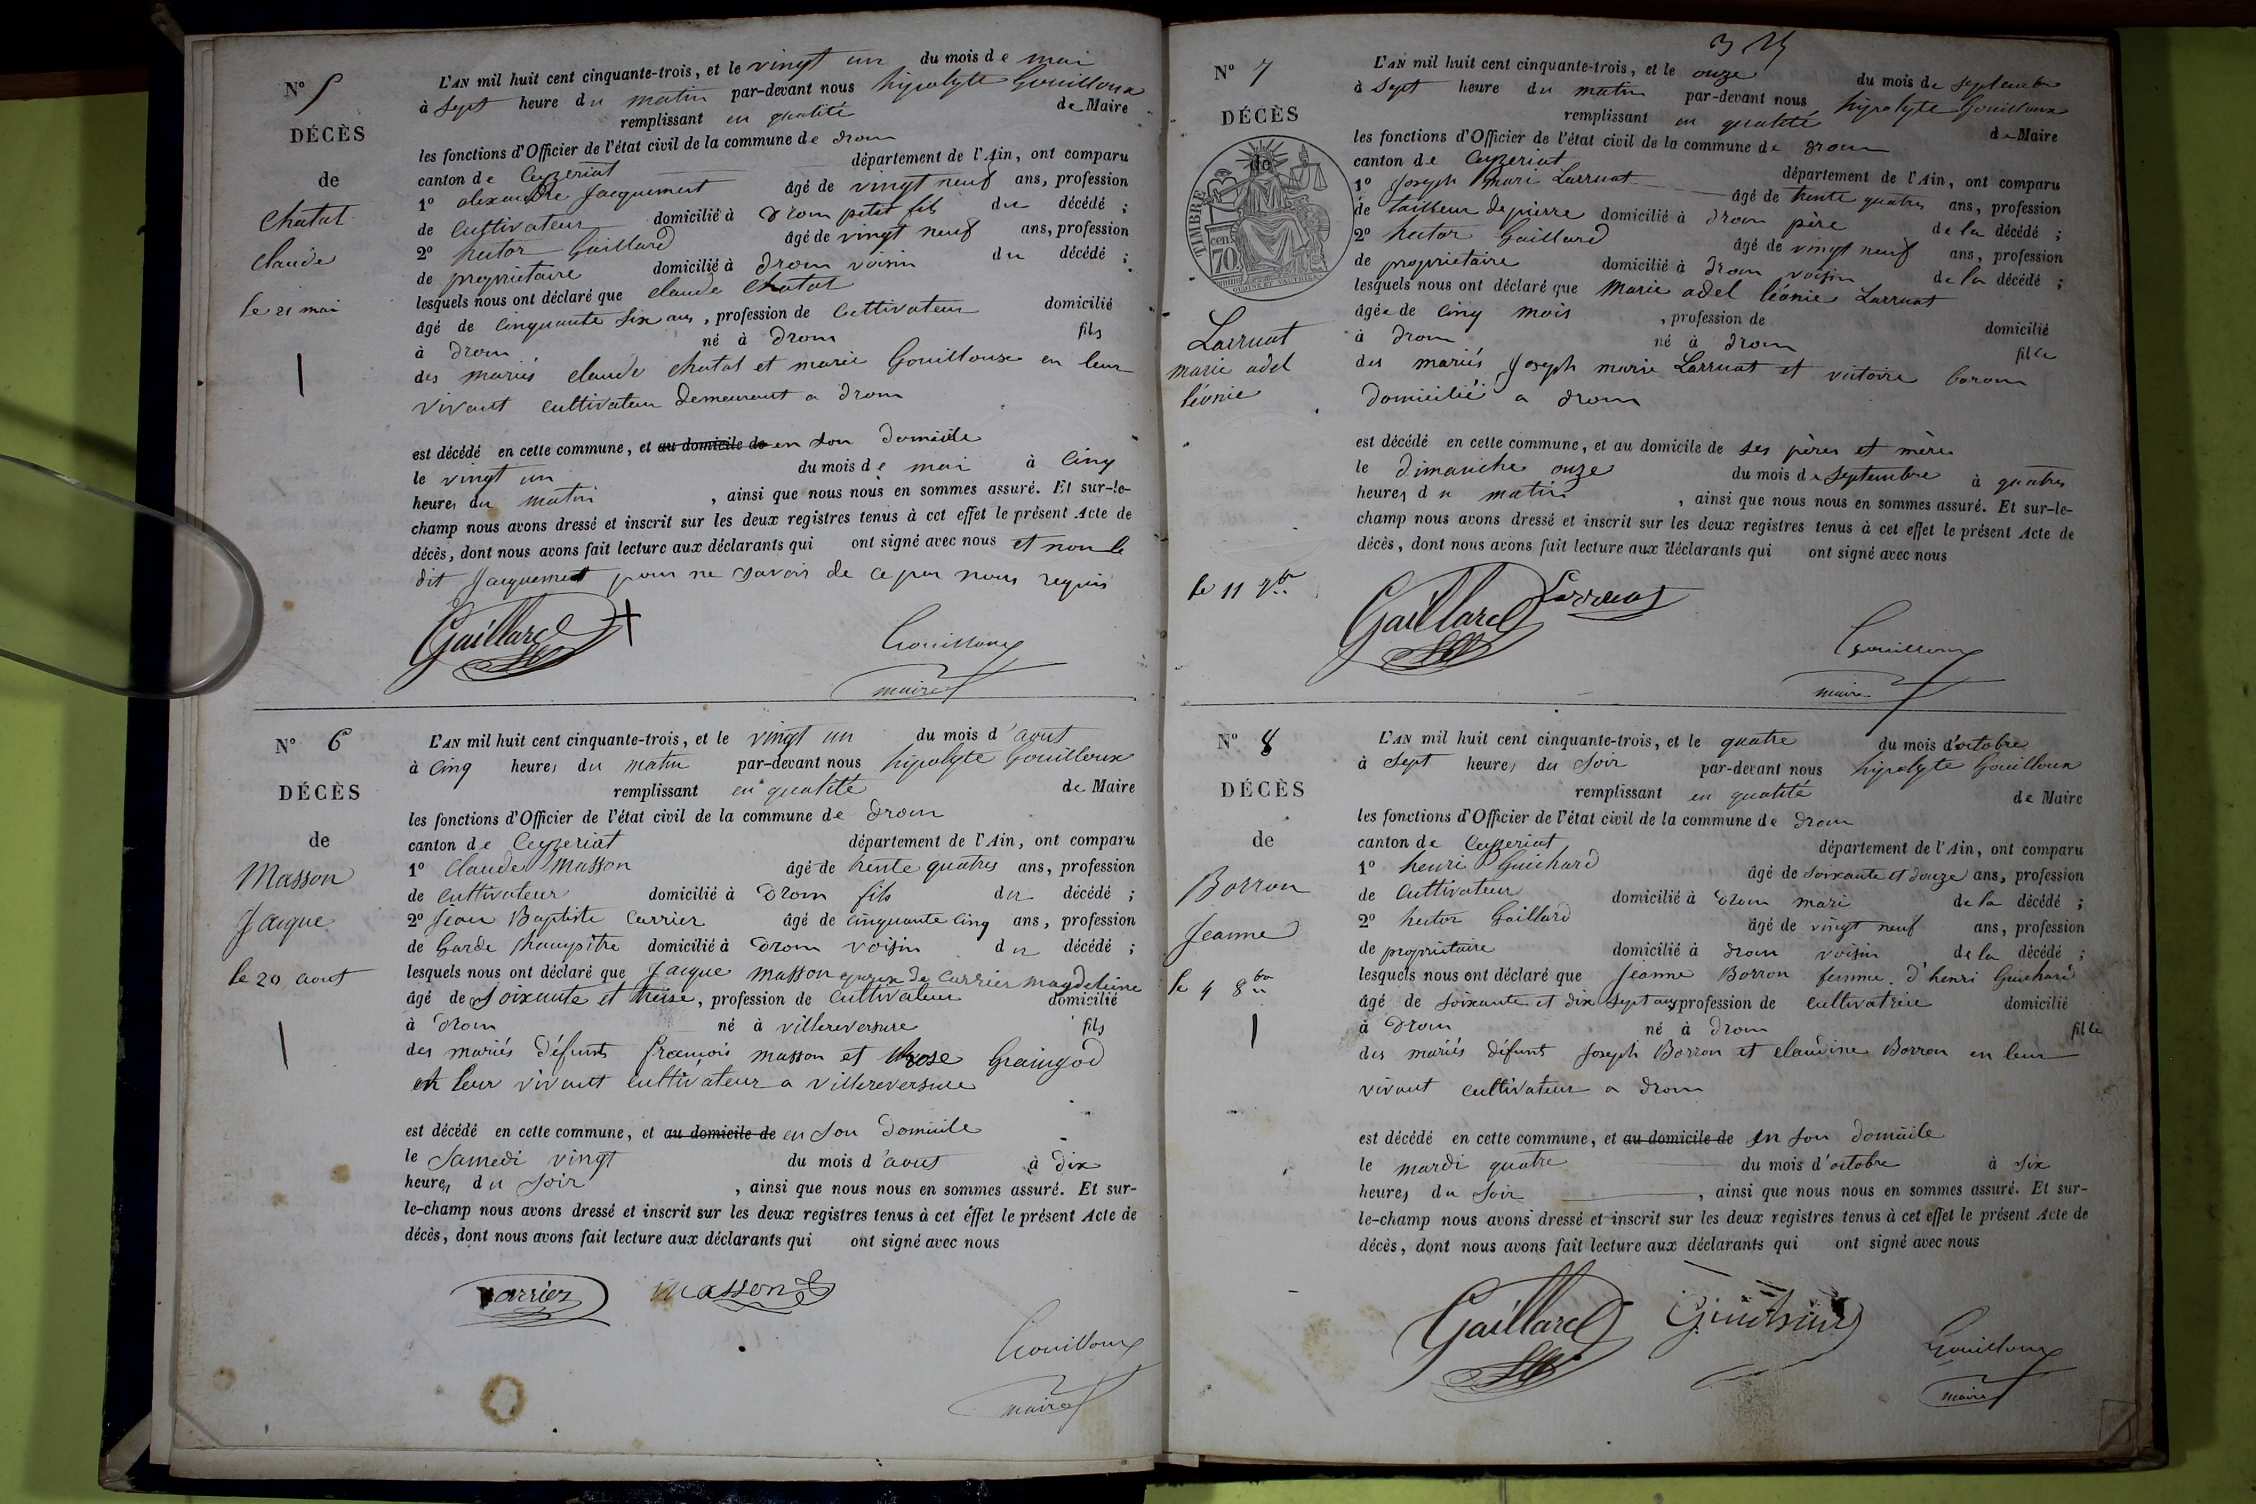 N° 5
DÉCÈS
de
Chatal
Claude
le 21 mai
L'AN mil huit cent cinquante-trois, et le vingt un du mois de mai
à Sept heure du matin par-devant nous hipolyte Gouilloux
remplissant en qualité de Maire
les fonctions d'Officier de l'état civil de la commune de drom
canton de Ceyzeriat département de l'Ain, ont comparu
1° alexandre Jacquemet âgé de vingt neuf ans, profession
de Cultivateur domicilié à Drom petit fils du décédé ;
2° hector Gaillard âgé de vingt neuf ans, profession
de propriétaire domicilié à drom voisin du décédé ;
lesquels nous ont déclaré que claude Chatal
âgé de cinquante six ans, profession de Cultivateur domicilié
à Drom né à Drom fils
des mariés claude chatal et marie Gouilloux en leur
vivant cultivateur demeurant a drom
est décédé en cette commune, et au domicile de en son domicile
le vingt un du mois de mai à Cinq
heures du matin, ainsi que nous nous en sommes assuré. Et sur-le-
champ nous avons dressé et inscrit sur les deux registres tenus à cet effet le présent Acte de
décès, dont nous avons fait lecture aux déclarants qui ont signé avec nous et non le
dit Jacquemet pour ne savoir de ce par nous requis
Gaillard +
Gouilloux
maire
N° 6
DÉCÈS
de
Masson
Jacque
le 20 aout
L'AN mil huit cent cinquante-trois, et le vingt un du mois d'aout
à Cinq heures du matin par-devant nous hipolyte Gouilloux
remplissant en qualité de Maire
les fonctions d'Officier de l'état civil de la commune de drom
canton de Ceyzeriat département de l'Ain, ont comparu
1° Claude Masson âgé de trente quatres ans, profession
de cultivateur domicilié à Drom fils du décédé ;
2° Jean Baptiste Carrier âgé de cinquante cinq ans, profession
de Garde Champêtre domicilié à Drom voisin du décédé ;
lesquels nous ont déclaré que Jacque masson epoux de Carrier magdeleine
âgé de Soixante et treise, profession de Cultivateur domicilié
à Drom né à villereversure fils
des mariés défunts francois masson et rose Graingod
en leur vivant cultivateur a villereversure
est décédé en cette commune, et au domicile de en son domicile
le Samedi vingt du mois d'aout à dix
heures du Soir, ainsi que nous nous en sommes assuré. Et sur-
le-champ nous avons dressé et inscrit sur les deux registres tenus à cet effet le présent Acte de
décès, dont nous avons fait lecture aux déclarants qui ont signé avec nous
Carrier Masson
Gouilloux
maire
N° 7
DÉCÈS
de
TIMBRE
70
Larruat
marie adel
léonie
le 11 7bre
L'AN mil huit cent cinquante-trois, et le onze du mois de septembre
à Sept heure du matin par-devant nous hipolyte Gouilloux
remplissant en qualité de Maire
les fonctions d'Officier de l'état civil de la commune de drom
canton de Ceyzeriat département de l'Ain, ont comparu
1° Joseph mari Larruat âgé de trente quatres ans, profession
de tailleur de pierre domicilié à drom père de la décédé ;
2° hector Gaillard âgé de vingt neuf ans, profession
de propriétaire domicilié à drom voisin de la décédé ;
lesquels nous ont déclaré que Marie adel léonie Larruat
âgée de Cinq mois, profession de domicilié
à drom né à drom fille
des mariés Joseph marie Larruat et victoire borom
domicilié a drom
est décédé en cette commune, et au domicile de ses pères et mère
le dimanche onze du mois de Septembre à quatres
heures du matin, ainsi que nous nous en sommes assuré. Et sur-le-
champ nous avons dressé et inscrit sur les deux registres tenus à cet effet le présent Acte de
décès, dont nous avons fait lecture aux déclarants qui ont signé avec nous
Gaillard Larruat
Gouilloux
maire
N° 8
DÉCÈS
de
Borron
Jeanne
le 4 8bre
L'AN mil huit cent cinquante-trois, et le quatre du mois d'octobre
à Sept heures du Soir par-devant nous hipolyte Gouilloux
remplissant en qualité de Maire
les fonctions d'Officier de l'état civil de la commune de drom
canton de Ceyzeriat département de l'Ain, ont comparu
1° henri Guichard âgé de soixante et douze ans, profession
de Cultivateur domicilié à Drom mari de la décédé ;
2° hector Gaillard âgé de vingt neuf ans, profession
de propriétaire domicilié à drom voisin de la décédé ;
lesquels nous ont déclaré que Jeanne Borron femme d'henri Guichard
âgé de soixante et dix sept ans, profession de cultivatrice domicilié
à Drom né à Drom fille
des mariés défunts Joseph Borron et claudine Borron en leur
vivant cultivateur a drom
est décédé en cette commune, et au domicile de en son domicile
le mardi quatre du mois d'octobre à six
heures du Soir, ainsi que nous nous en sommes assuré. Et sur-
le-champ nous avons dressé et inscrit sur les deux registres tenus à cet effet le présent Acte de
décès, dont nous avons fait lecture aux déclarants qui ont signé avec nous
Gaillard Guichard
Gouilloux
maire